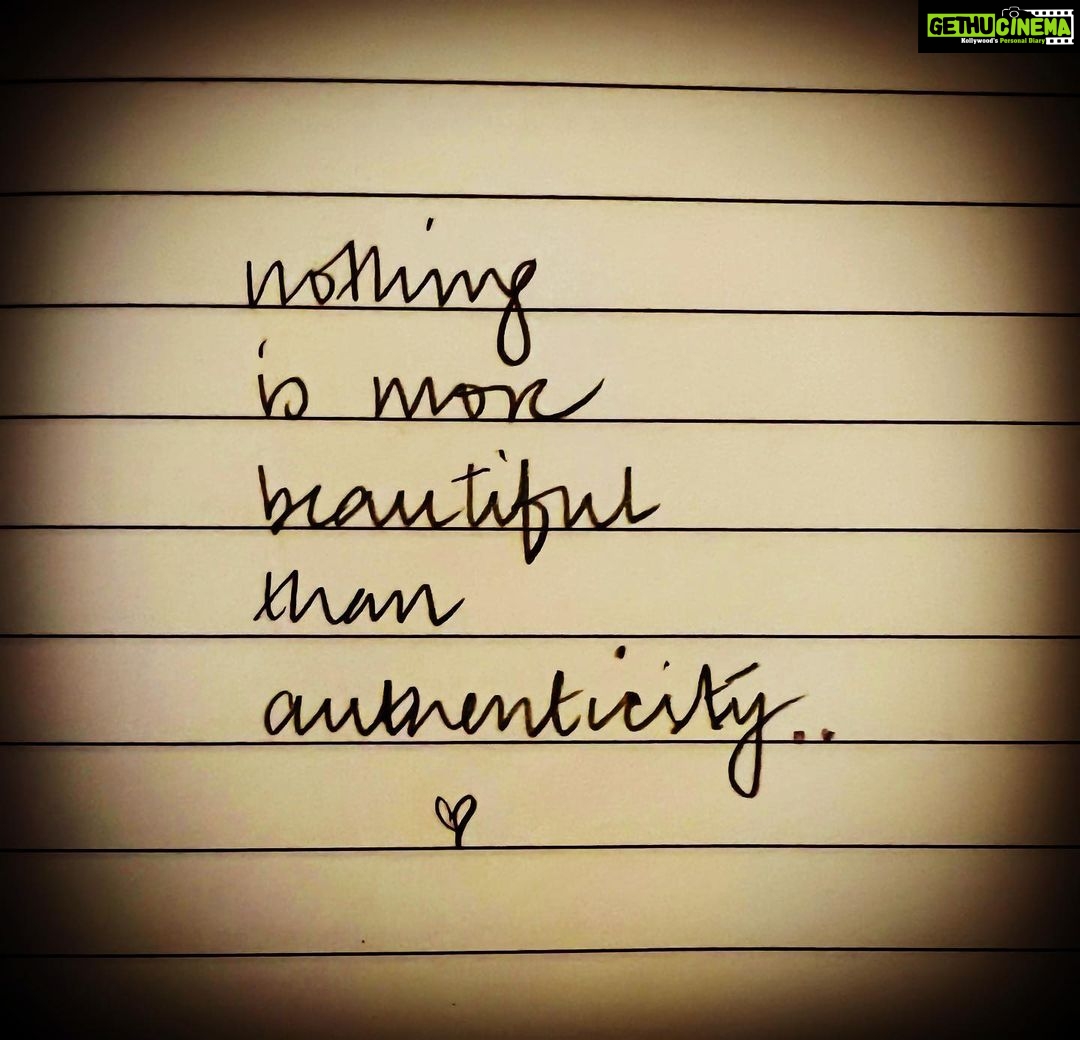 GETHUCINEMA
Kollywood's Personal Diary
nothing
is more
beautiful
than
authenticity..